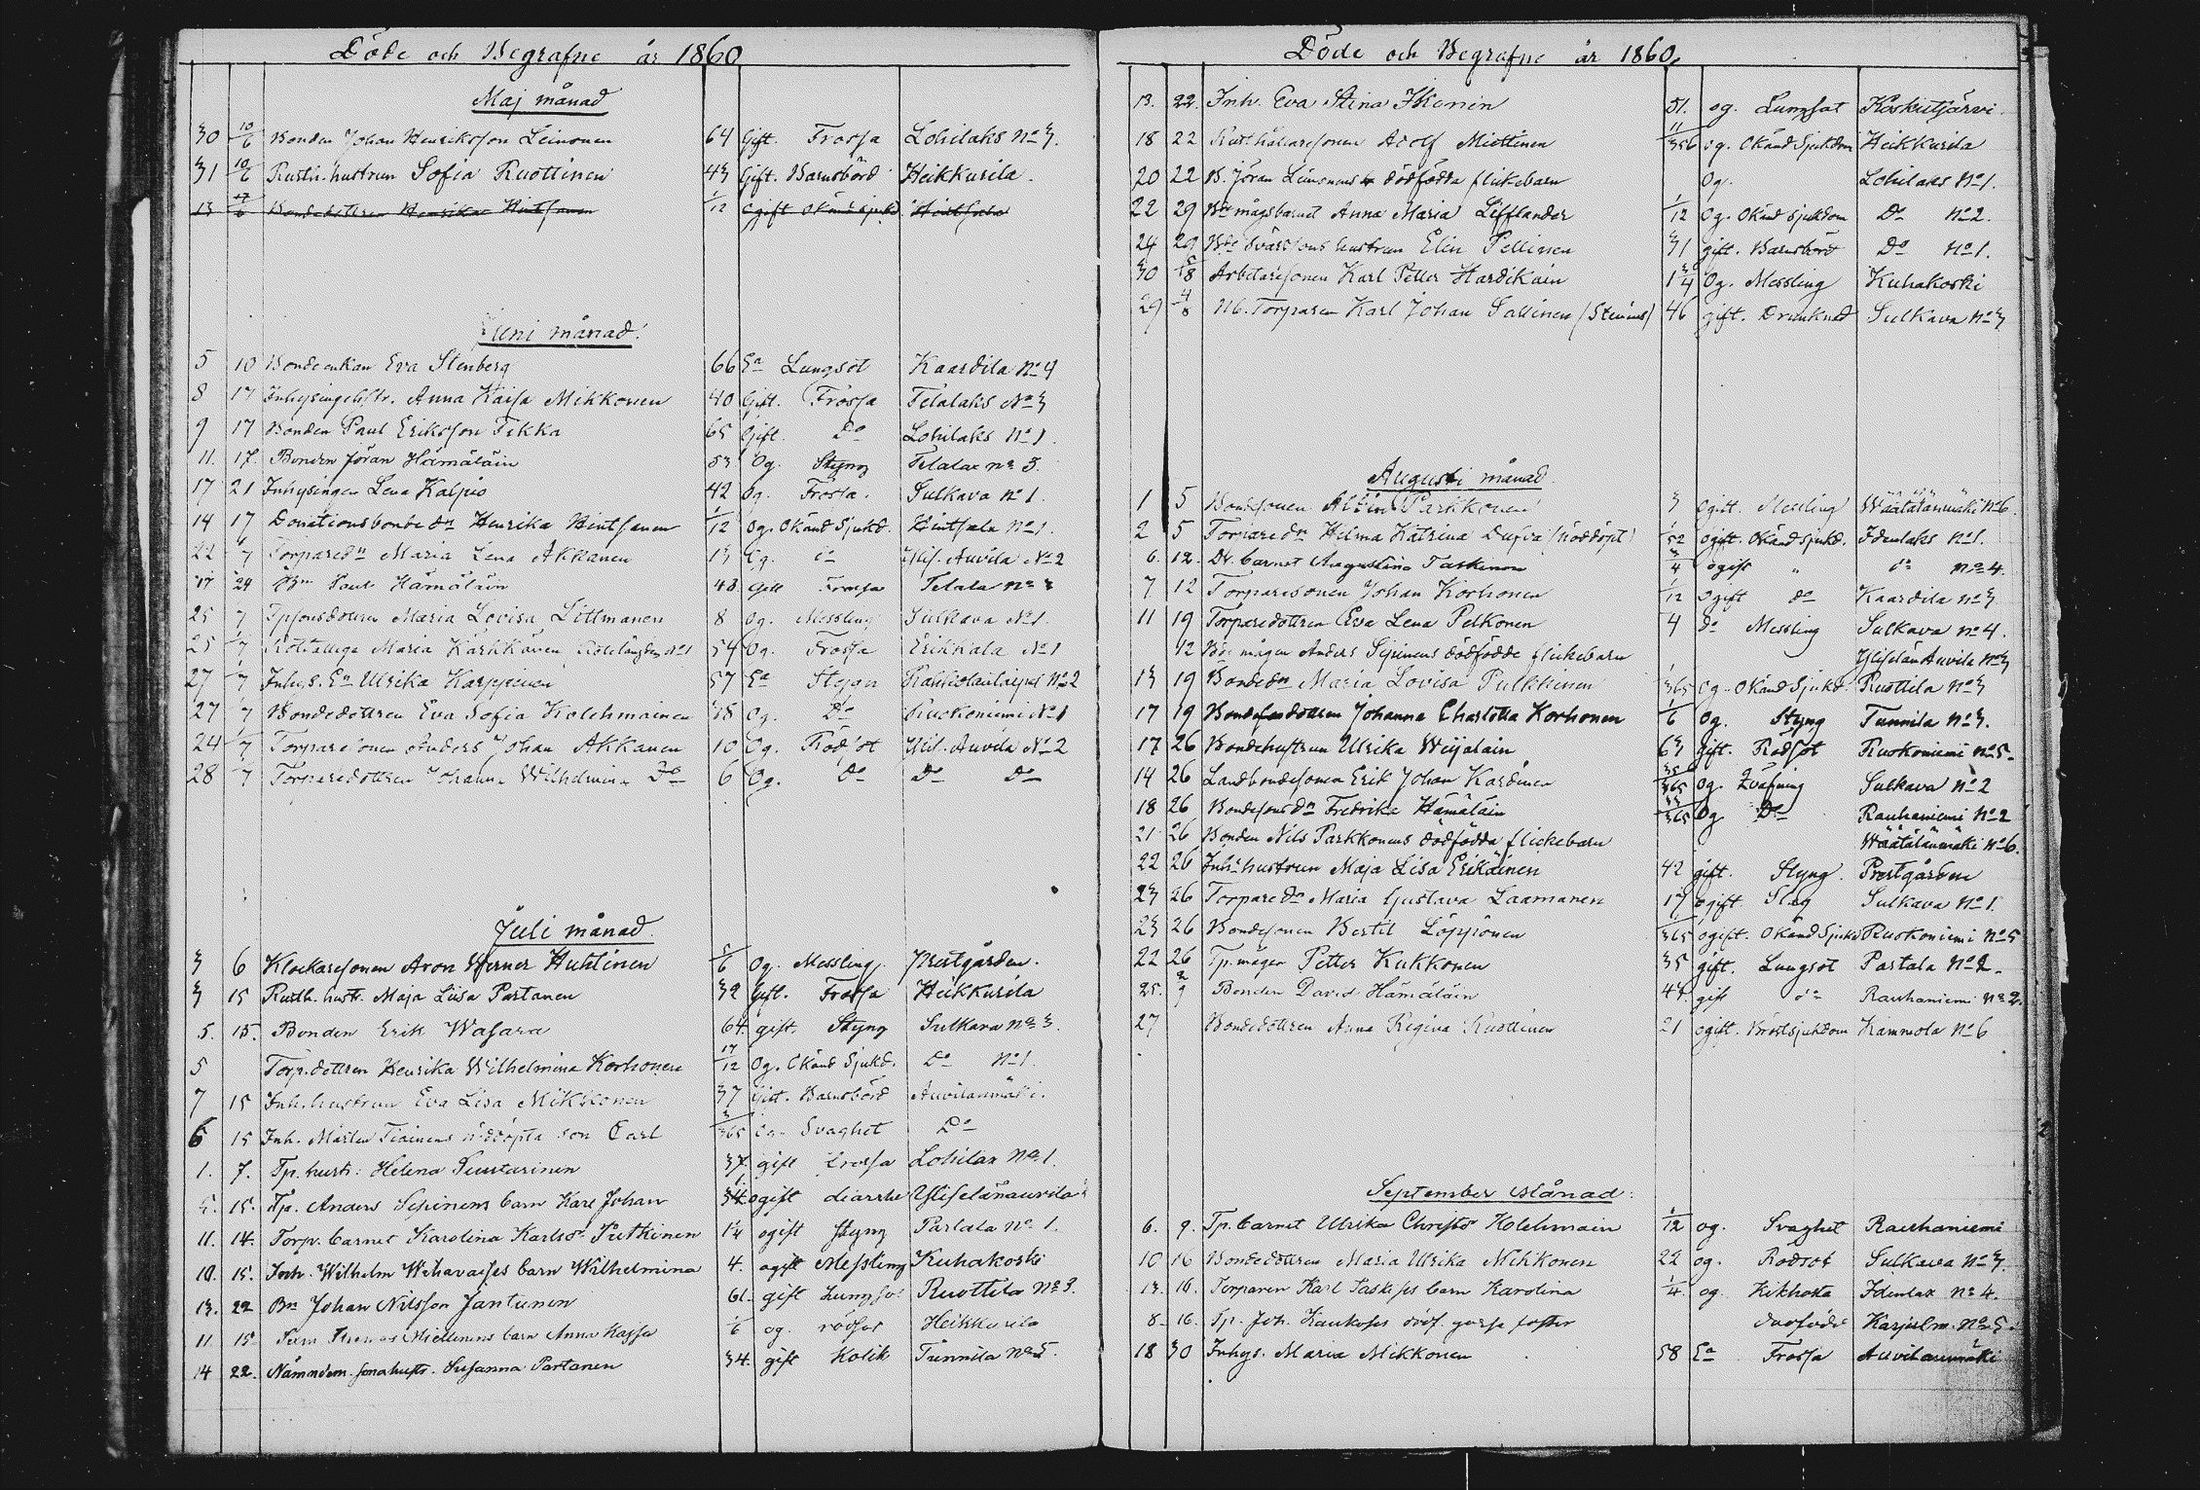 Döde och Begrafne år 1860
Maj månad
30 10/6 Bonden Johan Henriksson Leinonen 64 Gift. Frossa Lohilaks No 3.
31 10/6 Rusth. hustrun Sofia Ruottinen 43 Gift. Barnsbörd Heikkurila.
13 17/6 Bondedottren Henrika Hintsanen 1/12 Ogift Okänd sjukd. Hintsala
Juni månad.
5 10 Bondeenkan Eva Stenberg 66 Ea Lungsot Kaardila No 4
8 17 Inhysingehstr. Anna Kaisa Mikkonen 40 Gift. Frossa Telalaks No 3
9 17 Bonden Paul Eriksson Tikka 65 Gift. Do Lohilaks No 1.
11. 17. Bonden Jöran Hämäläin 53 Og. Styng Telalax no 3.
17 21 Inhysingen Lena Kalpio 42 Og. Frossa. Sulkava No 1.
14 17 Donationsbonde dn Henrika Hintsanen 1/12 Og. Okänd Sjukd. Hintsala No 1.
22 1/7 Torparedn Maria Lena Akkanen 13 Og. do Ylis. Auvila No 2
17 24 Paul Hämäläin 48 Gift Frossa Telala no 3
25 1/7 Tpsonsdottren Maria Lovisa Littmanen 8 Og. Messling Sulkava No 1.
25 1/7 Maria Kärkkänen 54 Og. Frossa Erikkala No 1
27 1/7 Inhys. En Ulrika Karppinen 57 Ea Styng No 2
27 1/7 Bondedottren Eva Sofia Kolehmainen 18 Og. Do Ruokoniemi No 1
24 1/7 Torparesonen Anders Johan Akkanen 10 Og. Rödsot Ylis. Auvila No 2
28 1/7 Torparedottren Johanna Wilhelmina Do 6 Og. Do Do Do
Juli månad.
3 6 Klockaresonen Aron Werner Huhtinen 5/6 Og. Messling. Prestgården.
3 15 Rusth. hustr. Maja Liisa Partanen 32 Gift. Frossa Heikkurila
5. 15. Bonden Erik Wasara 64 gift. Styng Sulkava no 3.
5 Torp. dottren Henrika Wilhelmina Korhonen 17/12 Og. Okänd Sjukd. Do No 1.
7 15 Inh. hustrun Eva Lisa Mikkonen 37 Gift. Barnsbörd Auvilanmäki.
6 15 Inh. Mårten Tiainens nöddöpta son Carl 3/365 Og. Svaghet Do
1. 7. Tp. hustr. Helena Suutarinen 37. gift Frossa Lohilax No 1.
5. 15. Tp. Anders Sepinens barn Karl Johan ogift diarrhe Ylisenänauvila
11. 14. Torp. barnet Karolina Karlsdr Putkinen 1/4 ogift Styng Partala no 1.
10. 15. Inh. Wilhelm Wihavaises barn Wilhelmina 4. ogift Messling Kuhakoski
13. 22 Bn Johan Nilsson Jantunen 61. gift Lungsot Ruottila No 3.
11. 15. barn Anna Kajsa 1/6 og. rödsot Heikkurila
14 22. Nämndem. sonahustr. Susanna Partanen 34. gift Kolik Tunnila no 5.
Döde och Begrafne år 1860.
13. 22. Inh. Eva Stina Ikonin 51. og. Lungsot Kaskutjärvi.
18 22 Rusthållaresonen Adolf Miettinen 11/356 og. Okänd Sjukdom Heikkurila
20 22 B. Jöran Leinonens dödfödda flickebarn Og. Lohilaks No 1.
22 29 Bde mågsbarnet Anna Maria Lifflander 1/12 Og. Okänd sjukdom Do No 2.
24 29 Bde svärsons hustrun Elin Pellinen 31 gift. Barnsbörd Do No 1.
30 5/8 Arbetaresonen Karl Petter Hardikain 1 3/4 Og. Messling Kuhakoski
29 4/8 NB. Torparen Karl Johan Sallinen (Stenius) 46 gift. Drunknad Sulkava No 3
Augusti månad.
1 5 Bondesonen Albin Parkkonen 3 Ogift. Messling Wäätälänmäki No 6.
2 5 Torparedn Helma Katrina Dufva (nöddöpt) 1/52 ogift. Okänd sjukd. Idenlaks No 1.
6. 12. Dr. barnet Augustina Taskinen 3/4 ogift " do no 4.
7 12 Torparesonen Johan Korhonen 1/12 Ogift do Kaardila No 3
11 19 Torparedottren Eva Lena Pelkonen 4 do Messling Sulkava No 4.
12 Bde mågen Anders Sepinens dödfödde flickebarn Ylisenän Auvila No 3
13 19 Bondedn Maria Lovisa Pulkkinen 1/365 Og. Okänd Sjukd. Ruottila No 3
17 19 Bondesdottren Johanna Charlotta Korhonen 1/6 Og. Styng Tunnila No 3.
17 26 Bondehustrun Ulrika Weijalain 63 gift. Rödsot Ruokoniemi No 5.
14 26 Landbondesonen Erik Johan Kardinen 35/365 og. Qväfning Sulkava No 2
18 26 Bondesons dn Fredrika Hämäläin 33/365 Og Do Rauhaniemi No 2
21 26 Bonden Nils Parkkonens dödfödda flickebarn Wäätälänmäki No 6.
22 26 Inhs hustrun Maja Lisa Erikäinen 42 gift. Styng. Prestgården
23 26 Torparedn Maria Gustava Laamanen 17 ogift. Slag Sulkava No 1.
23 26 Bondesonen Bertil Löppönen 1/365 ogift. Okänd Sjukd Ruokoniemi No 5
22 26 Tp. mågen Petter Kukkonen 35 gift. Lungsot Partala No 2.
25. 2/9 Bonden David Hämäläin 44 gift do Rauhaniemi no 2.
27 Bondedottren Anna Regina Ruottinen 21 ogift. Bröstsjukdom Kammola No 6
September Månad.
6. 9. Tp. barnet Ulrika Christo Kolehmain 1/12 og. Svaghet Rauhaniemi
10 16 Bondedottren Maria Ulrika Mikkonen 22 og. Rödsot Sulkava No 3.
13. 16. Torparen Karl barn Karolina 1/4. og. Kikhosta Idenlax no 4.
8. 16. Tp. Joh. dödfödd No 5.
18 30 Inhys. Maria Mikkonen 58 Ea Frossa Auvilanmäki